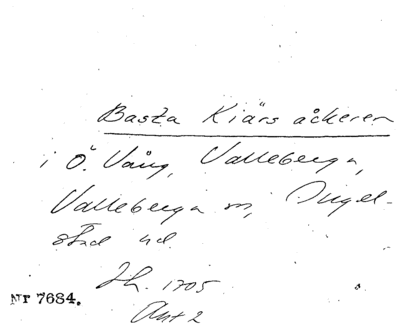 Basta Kiärs åckeren
i Ö. Vång, Valleberga,
Valleberga sn, Ingel-
stad hd.
Jh. 1705
Akt 2
Nr 7684.